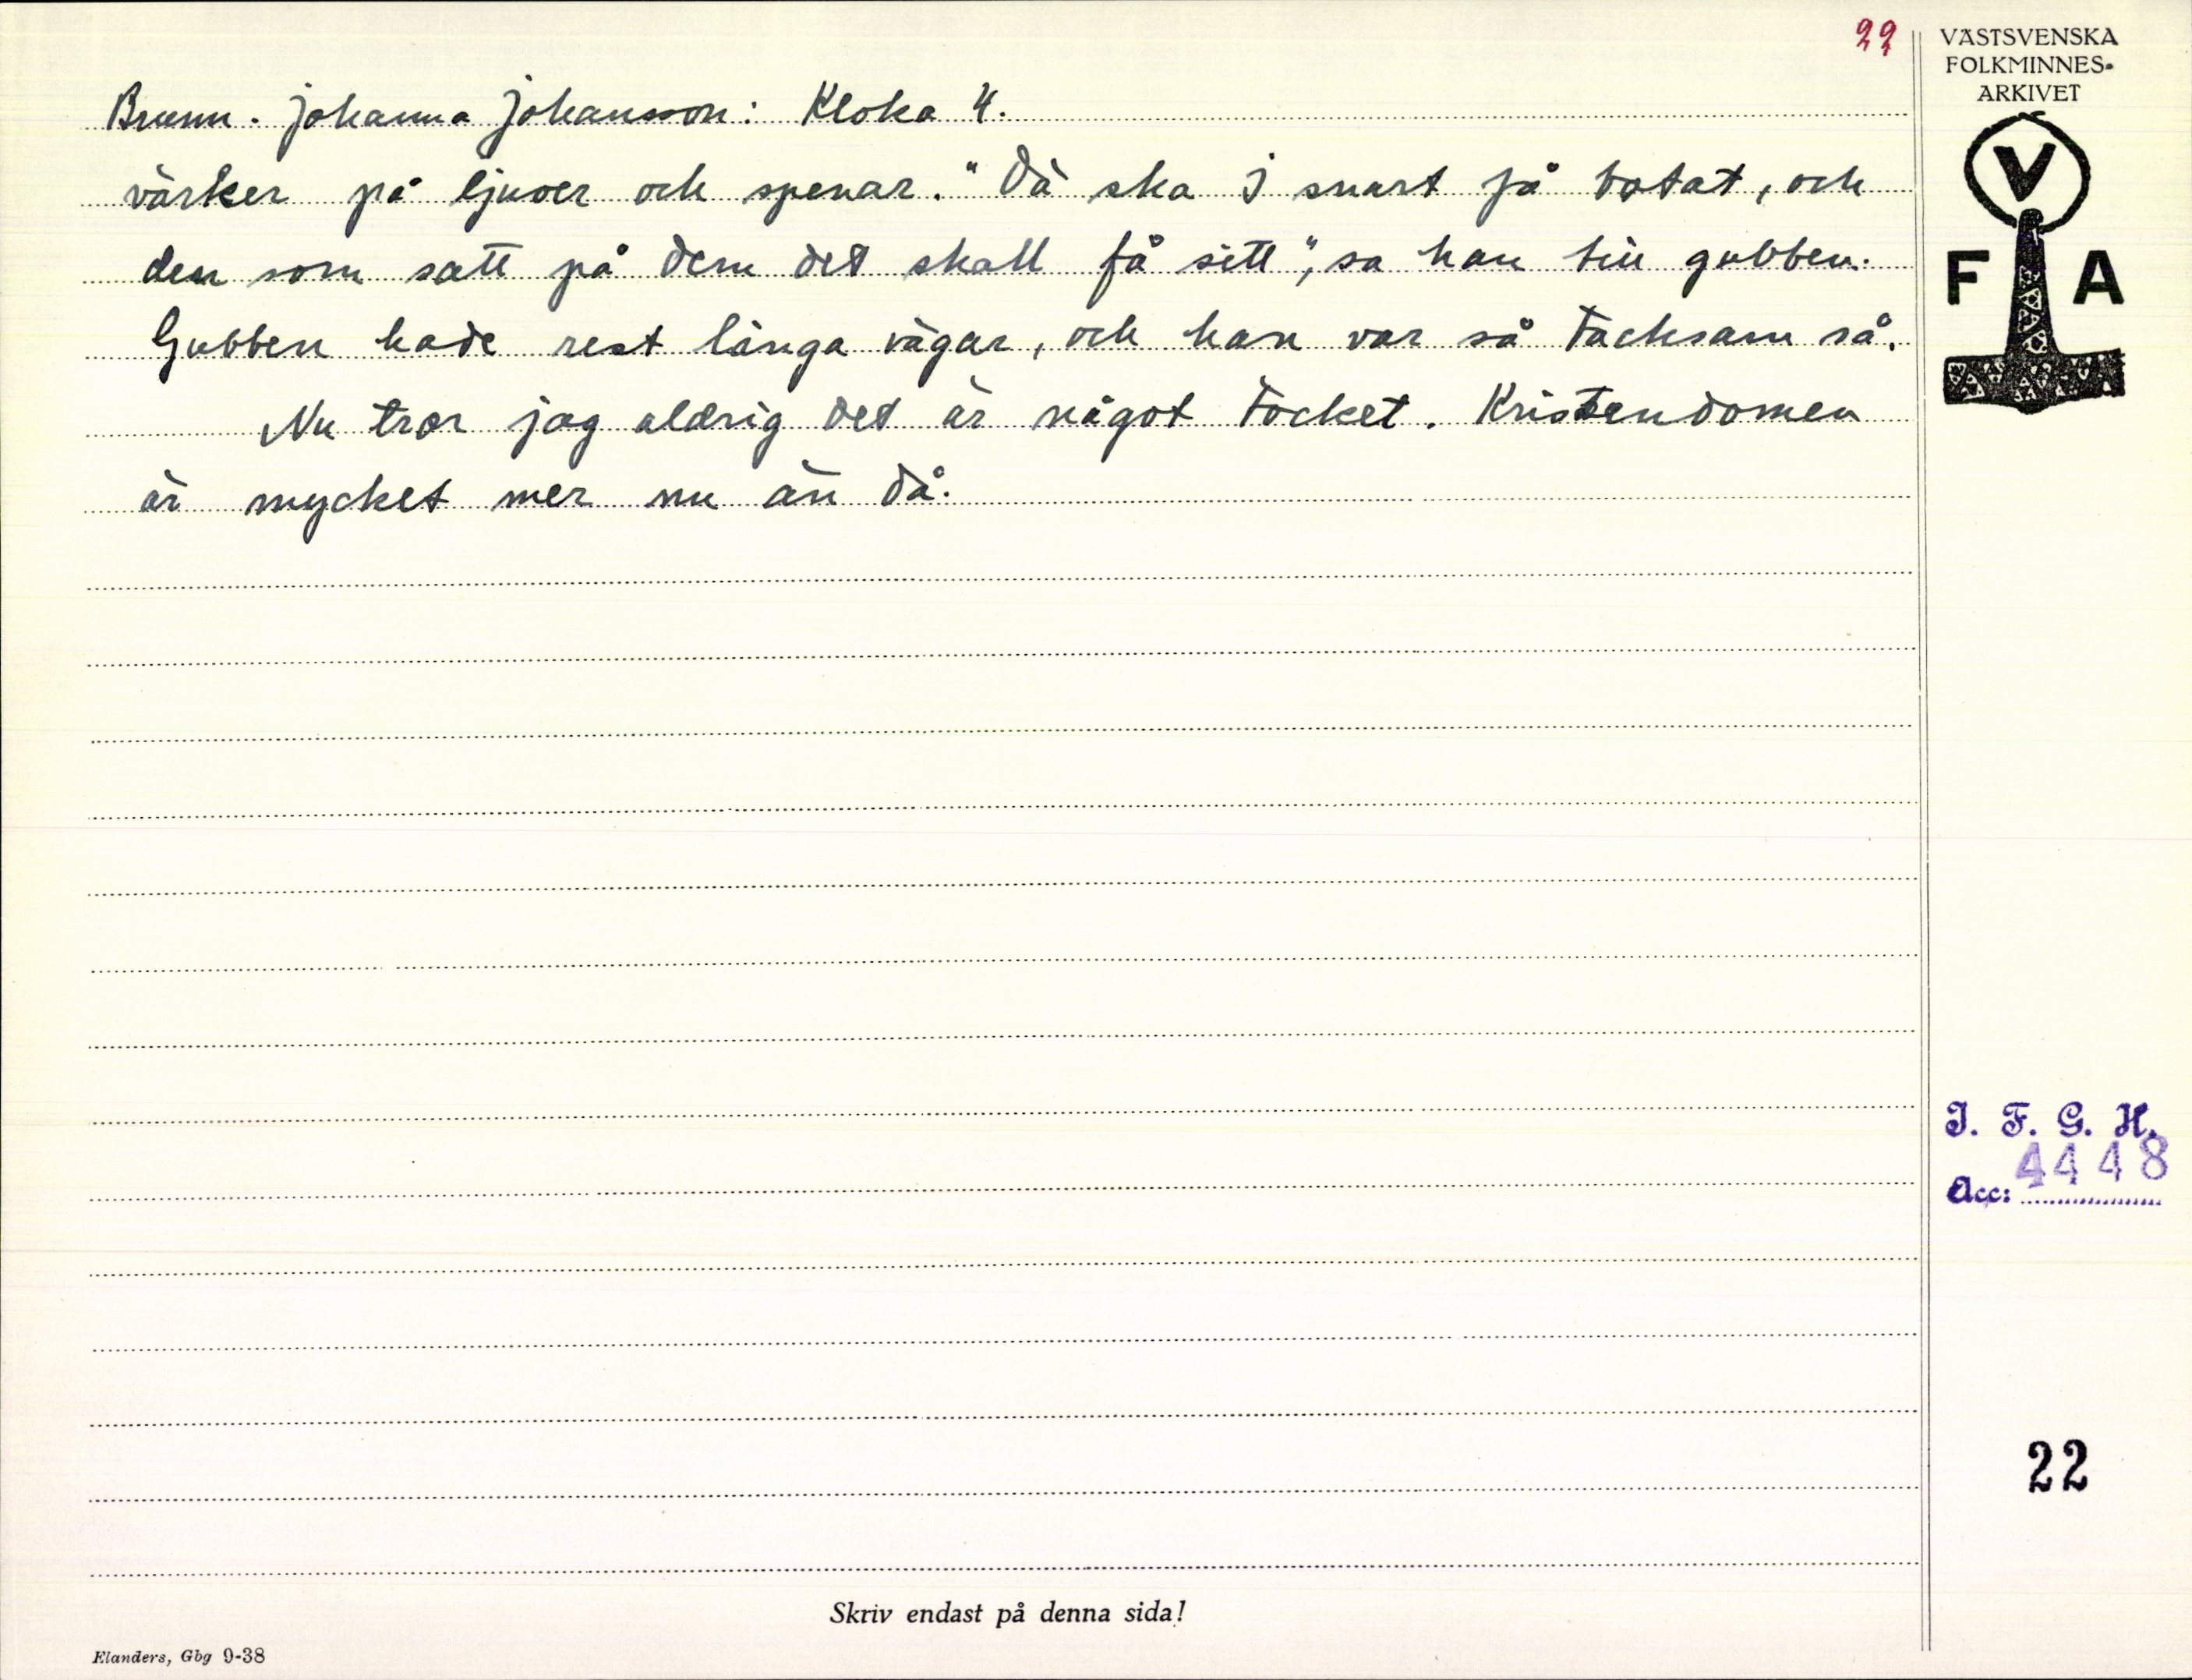 22
VÄSTSVENSKA
FOLKMINNES-
ARKIVET
V
F A
Brunn. Johanna Johansson: Kloka 4.
värker på ljuver och spenar. "Då ska I snart få botat, och
den som satt på dem det skall få sitt", sa han till gubben.
Gubben hade rest långa vägar, och han var så tacksam så.
Nu tror jag aldrig det är något tocket. Kristendomen
är mycket mer nu än då.
I. F. G. H.
Acc: 4448
22
Skriv endast på denna sida!
Elanders, Gbg 9-38